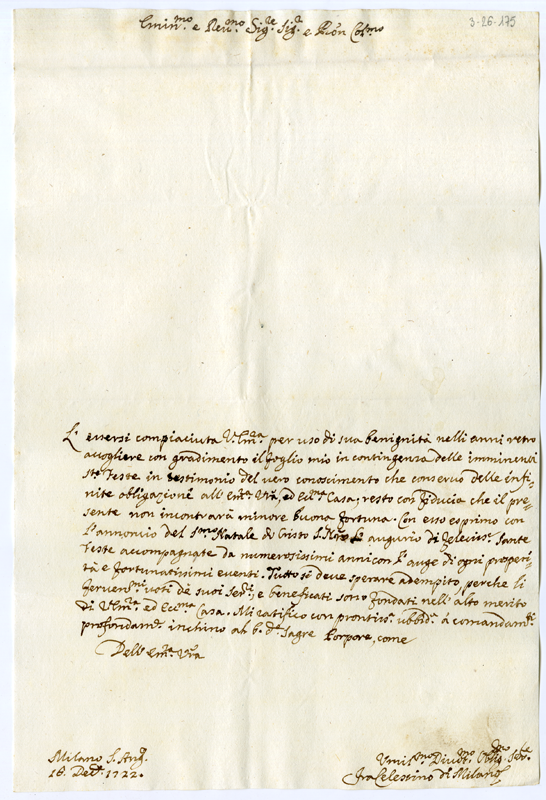 3-26-175
Emin.mo e Rev.mo Sig.re Sig.r e Pron Col.mo
L'essersi compiaciuta V. Em.za per uso di sua benignità nelli anni retro
accogliere con gradimento il foglio mio in contingenza delle imminenti
S.te Feste in testimonio del vero conoscimento che conservo delle infi-
nite obligazioni all'Em.za V.ra, ed Ecc.ma Casa; resto con fiducia che il pre-
sente non incontrarà minore buona fortuna. Con esso esprimo con
l'annoncio del S.mo Natale di Cristo S. Nro le augurio di felciss.e Sante
Feste accompagnate da numerosissimi anni con l'auge di ogni prosperi-
tà e fortunatissimi eventi. Tutto si deve sperare adempito, perche li
ferven.mi voti de suoi Ser.i, e beneficati sono fondati nell'alto merito
di V. Em.za ed Ecc.ma Casa. Mi ratifico con prontiss.a ubbid.a à comandam.ti
profondam.te inchino al b. d. Sagre Porpore, come
Dell'Em.za V.ra
Milano S. Ang.o
16 Dec.e 1722.
Umis.mo Divot.mo Oblig.mo Ser.e
Fra Celestino di Milano